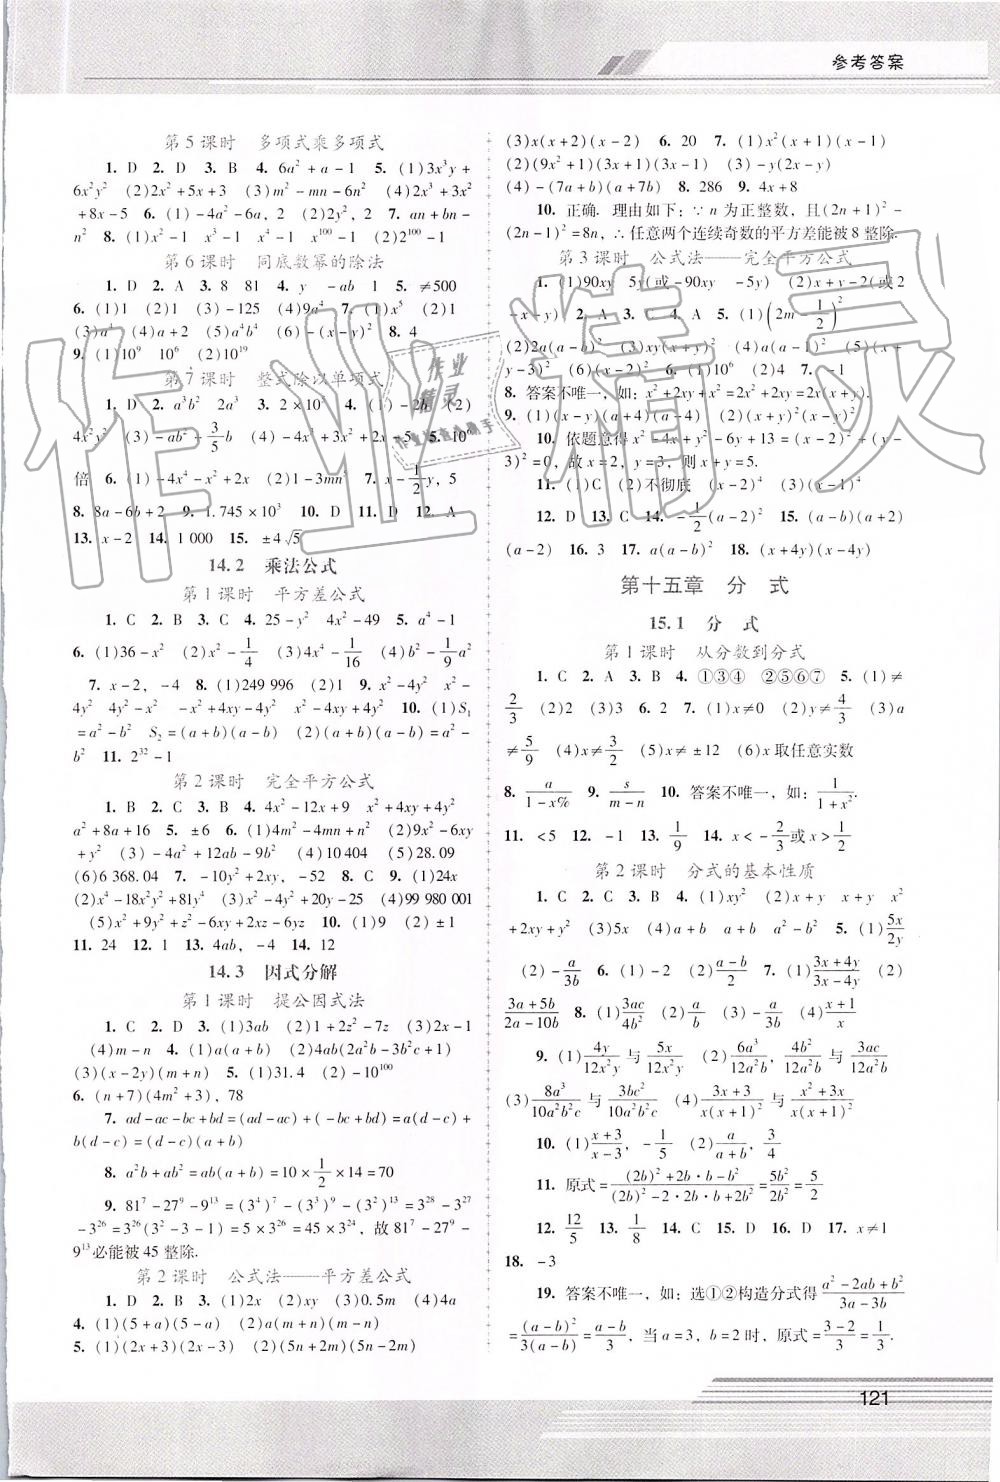 参考答案
第5课时　多项式乘多项式
1. D　2. D　3. B　4. 6a²+a-1　5. (1)3x³y+
6x²y²　(2)2x²+5x+5　(3)m²-mn-6n²　(4)2x³+3x²
+8x-5　6. (1)-4a²-6a, 2　(2)2y², 2　7. an+bn-
n²　8. (1)x²-1　x³-1　x⁴-1　x¹⁰⁰-1　(2)2¹⁰⁰-1
第6课时　同底数幂的除法
1. D　2. A　3. 8　81　4. y　-ab　1　5. ≠500
6. (1)1　(2)1　(3)-125　(4)9a⁴　7. (1)x⁵　(2)1
(3)a⁴　(4)a+2　(5)a⁴b⁴　(6)-(x-y)²　8. 4
9. (1)10⁹　10⁶　(2)10¹⁹
第7课时　整式除以单项式
1. D　2. a³b²　2a³　3. 2×10²　4. (1)-2b　(2)
4x²y²　(3)-ab²+3/5b　(4)-4x³+3x²-5　5. 10⁵
倍　6. (1)-4x⁴-x²+2x　(2)1-3mn　7. x-1/2y, 5
8. 8a-6b+2　9. 1.745×10³　10. D　11. D　12. A
13. x-2　14. 1 000　15. ±4√5
14.2　乘法公式
第1课时　平方差公式
1. C　2. B　3. C　4. 25-y²　4x²-49　5. a⁴-1
6. (1)36-x²　(2)x²-1/4　(3)4x²-1/16　(4)b²-1/9a²
7. x-2, -4　8. (1)249 996　(2)1　9. x²-4y²　x²-
4y²　4y²-x²　-x²+4xy-4y²　x²-4xy+4y²　10. (1)S₁
=a²-b²　S₂=(a+b)(a-b)　(2)(a+b)(a-b)=a²-
b²　11. 2³²-1
第2课时　完全平方公式
1. B　2. C　3. B　4. 4x²-12x+9　x²+4xy+4y²
a²+8a+16　5. ±6　6. (1)4m²-4mn+n²　(2)9x²-6xy
+y²　(3)-4a²+12ab-9b²　(4)10 404　(5)28.09
(6)6 368.04　7. -10y²+2xy, -52　8. C　9. (1)24x
(2)x⁴-18x²y²+81y⁴　(3)x²-4y²+20y-25　(4)99 980 001
(5)x²+9y²+z²-6xy+2xz-6yz　10. (1)9　(2)±1
11. 24　12. 1　13. 4ab, -4　14. 12
14.3　因式分解
第1课时　提公因式法
1. C　2. D　3. (1)3ab　(2)1+2z²-7z　(3)2x-1
(4)m-n　4. (1)a(a+b)　(2)4ab(2a²b-3b²c+1)
(3)(x-2y)(m+n)　5. (1)31.4　(2)-10¹⁰⁰
6. (n+7)(4m²+3), 78
7. ad-ac-bc+bd=(ad-ac)+(-bc+bd)=a(d-c)+
b(d-c)=(d-c)(a+b)
8. a²b+ab²=ab(a+b)=10×1/2×14=70
9. 81⁷-27⁹-9¹³=(3⁴)⁷-(3³)⁹-(3²)¹³=3²⁸-3²⁷
-3²⁶=3²⁶(3²-3-1)=5×3²⁶=45×3²⁴, 故81⁷-27⁹-
9¹³必能被45整除.
第2课时　公式法——平方差公式
1. D　2. B　3. (1)2x　(2)xy　(3)0.5m　(4)4a
4. (1)(5+a)(5-a)　(2)a(m+n)(m-n)
5. (1)(2x+3)(2x-3)　(2)(5n+2m)(5n-2m)
(3)x(x+2)(x-2)　6. 20　7. (1)x²(x+1)(x-1)
(2)(9x²+1)(3x+1)(3x-1)　(3)-y(2x-y)
(4)-(7a+b)(a+7b)　8. 286　9. 4x+8
10. 正确. 理由如下: ∵n为正整数, 且(2n+1)²-
(2n-1)²=8n, ∴任意两个连续奇数的平方差能被8整除.
第3课时　公式法——完全平方公式
1. (1)90xy　5y(或-90xy　-5y)　(2)x+y-2(或2
-x-y)　2. A　3. C　4. A　5. (1)(2m-1/2)²
(2)2a(a-b)²　(3)xy(x+y)²　(4)a(a-1)²　(5)(x+2)²
(x-2)²　(6)-(a-b)²　6. (1)10⁶　(2)4　7. -1
8. 答案不唯一, 如: x²+2xy+x²=2x²+2xy=2x(x+y).
9. (1)(x-y)(a+4)(a-4)　(2)(x+y+z)²
10. 依题意得x²-4x+y²-6y+13=(x-2)²+(y-
3)²=0, 故x=2, y=3, 则x+y=5.
11. (1)C　(2)不彻底　(x-2)⁴　(3)(x-1)⁴
12. D　13. C　14. -1/2(a-2)²　15. (a-b)(a+2)
(a-2)　16. 3　17. a(a-b)²　18. (x+4y)(x-4y)
第十五章　分　式
15.1　分　式
第1课时　从分数到分式
1. C　2. A　3. B　4. ①③④　②⑤⑥⑦　5. (1)≠
2/3　(2)2　(3)3　6. 2　7. (1)x≠0　(2)y≠4/3　(3)a
≠5/9　(4)x≠3/2　(5)x≠±12　(6)x取任意实数
8. a/(1-x%)　9. s/(m-n)　10. 答案不唯一, 如: 1/(1+x²).
11. <5　12. -1　13. 1/9　14. x<-2/3或x>1/2
第2课时　分式的基本性质
1. C　2. C　3. B　4. (1)xy²　(2)x+y　x+y　x²
+2xy+y²　(3)5x　(4)a+b　a+b　a²-b²　5. (1)5x/2y
(2)-a/3b　6. (1)-2　(2)(a-b)/2　7. (1)(3x+4y)/(3x-4y)　(2)
(3a+5b)/(2a-10b)　8. (1)3ac/4b²　(2)a/b　(3)-a/3b　(4)(x+1)/x
9. (1)4y/12x²y与5x/12x²y　(2)6a³/12a²b, 4b²/12a²b与3ac/12a²b
(3)8a³/10a²b²c与3bc²/10a²b²c　(4)(3x+3)/x(x+1)²与(x²+x)/x(x+1)²
10. (1)(x+3)/(x-3), -1/5　(2)a/(a+b), 3/4
11. 原式=((2b)²+2b·b-b²)/((2b)²-2·2b·b+2b²)=5b²/2b²=5/2
12. 12/5　13. 1/8　14. C　15. D　16. D　17. x≠1
18. -3
19. 答案不唯一, 如: 选①②构造分式得(a²-2ab+b²)/(3a-3b)
=(a-b)²/3(a-b)=(a-b)/3, 当a=3, b=2时, 原式=(3-2)/3=1/3.
121